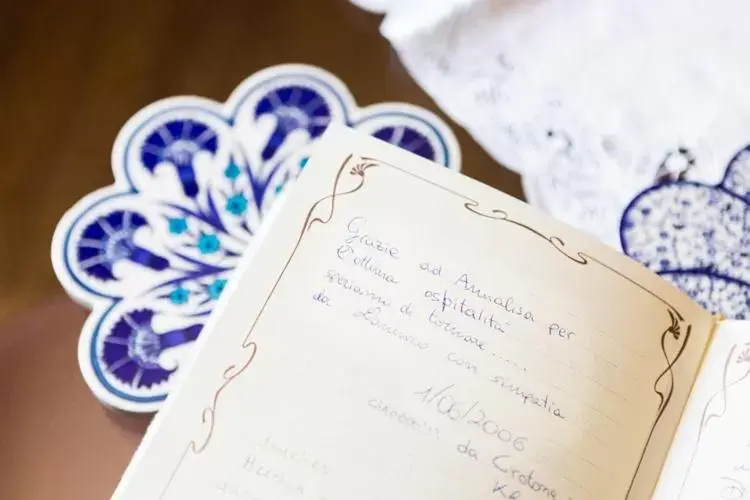 Grazie ad Annalisa per
l'ottima ospitalità
speriamo di tornare......
da Lorenzo con simpatia
1/06/2006
da Crotone
KR